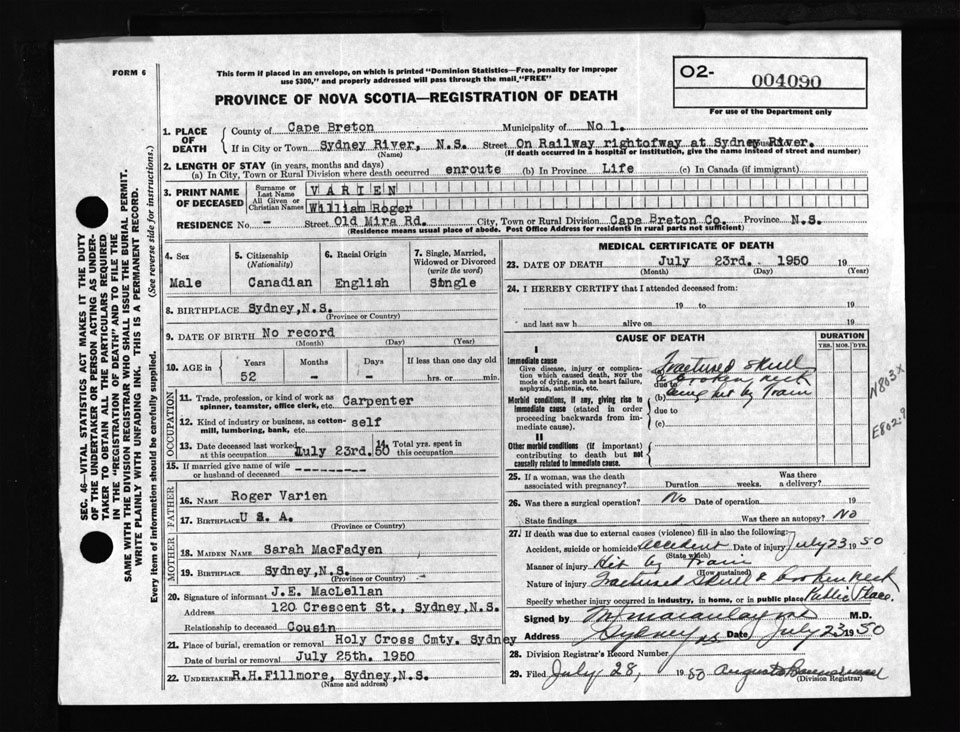 FORM 6
This form if placed in an envelope, on which is printed "Dominion Statistics—Free, penalty for improper
use $300," and properly addressed will pass through the mail, "FREE"
PROVINCE OF NOVA SCOTIA—REGISTRATION OF DEATH
O2- 004090
For use of the Department only
SEC. 46—VITAL STATISTICS ACT MAKES IT THE DUTY
OF THE UNDERTAKER OR PERSON ACTING AS UNDER-
TAKER TO OBTAIN ALL THE PARTICULARS REQUIRED
IN THE "REGISTRATION OF DEATH" AND TO FILE THE
SAME WITH THE DIVISION REGISTRAR WHO SHALL ISSUE THE BURIAL PERMIT.
WRITE PLAINLY WITH UNFADING INK. THIS IS A PERMANENT RECORD.
Every item of information should be carefully supplied. (See reverse side for instructions.)
1. PLACE OF DEATH
County of Cape Breton Municipality of No 1.
If in City or Town Sydney River, N.S. Street On Railway rightofway at Sydney River.
(Name) (If death occurred in a hospital or institution, give the name instead of street and number)
2. LENGTH OF STAY (in years, months and days)
(a) In City, Town or Rural Division where death occurred enroute (b) In Province Life (c) In Canada (if immigrant)
3. PRINT NAME OF DECEASED
Surname or Last Name VARIEN
All Given or Christian Names William Roger
RESIDENCE No. – Street Old Mira Rd. City, Town or Rural Division Cape Breton Co. Province N.S.
(Residence means usual place of abode. Post Office Address for residents in rural parts not sufficient)
4. Sex
Male
5. Citizenship
(Nationality)
Canadian
6. Racial Origin
English
7. Single, Married,
Widowed or Divorced
(write the word)
Single
8. BIRTHPLACE Sydney, N.S.
(Province or Country)
9. DATE OF BIRTH No record
(Month) (Day) (Year)
10. AGE in Years Months Days If less than one day old
52 – – hrs. or min.
OCCUPATION
11. Trade, profession, or kind of work as
spinner, teamster, office clerk, etc. Carpenter
12. Kind of industry or business, as cotton-
mill, lumbering, bank, etc. self
13. Date deceased last worked
at this occupation July 23rd. 50
14. Total yrs. spent in
this occupation
15. If married give name of wife
or husband of deceased ---------
FATHER
16. NAME Roger Varien
17. BIRTHPLACE U S. A.
(Province or Country)
MOTHER
18. MAIDEN NAME Sarah MacFadyen
19. BIRTHPLACE Sydney, N.S.
(Province or Country)
20. Signature of informant J.E. MacLellan
Address 120 Crescent St., Sydney, N.S.
Relationship to deceased Cousin
21. Place of burial, cremation or removal Holy Cross Cmty. Sydney
Date of burial or removal July 25th. 1950
22. UNDERTAKER R.H. Fillmore, Sydney, N.S.
(Name and address)
MEDICAL CERTIFICATE OF DEATH
23. DATE OF DEATH July 23rd. 1950 19
(Month) (Day) (Year)
24. I HEREBY CERTIFY that I attended deceased from:
19 to 19
and last saw h alive on 19
CAUSE OF DEATH
DURATION
YRS. MOS. DYS.
I
Immediate cause
Give disease, injury or complica-
tion which caused death, NOT the
mode of dying, such as heart failure,
asphyxia, asthenia, etc.
Fractured Skull
& broken neck
due to
(b) being hit by Train
Morbid conditions, if any, giving rise to
immediate cause (stated in order
proceeding backwards from im-
mediate cause).
due to
(c)
II
Other morbid conditions (if important)
contributing to death but not
causally related to immediate cause.
N803X
E802.9
25. If a woman, was the death
associated with pregnancy? Duration weeks. Was there
a delivery?
26. Was there a surgical operation? No Date of operation 19
State findings Was there an autopsy? No
27. If death was due to external causes (violence) fill in also the following:
Accident, suicide or homicide accident Date of injury July 23 1950
(State which)
Manner of injury Hit by Train
(How sustained)
Nature of injury Fractured Skull & broken neck
Specify whether injury occurred in industry, in home, or in public place Public Place.
Signed by M.D.
Address Sydney NS Date July 23 1950
28. Division Registrar's Record Number
29. Filed July 28, 1950
(Division Registrar)